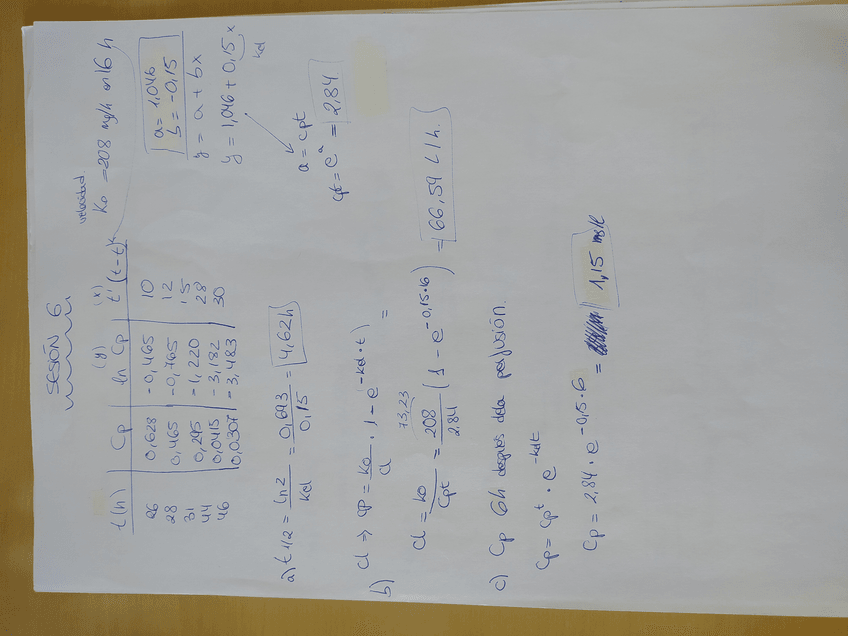 SESIÓN 6
t(h) Cp (y) ln Cp (x) t' (t-t)*
26 0,628 -0,465 10
28 0,465 -0,765 12
31 0,295 -1,220 15
44 0,0415 -3,182 28
46 0,0307 -3,483 30
velocidad
K0 = 208 mg/h en 16 h
a = 1,046
b = -0,15
y = a + bx
y = 1,046 + 0,15 x
kel
a = cpt
cpt = e^a = 2,84
a) t 1/2 = ln2 / kel = 0,693 / 0,15 = 4,62h
b) Cl ⇒ Cp = K0 / Cl · 1 - e^(-kel·t)
=
73,23
Cl = k0 / Cpt = 208 / 2,84 (1 - e^-0,15·16) = 66,59 L/h.
c) Cp 6h después de la perfusión.
Cp = Cp^t · e^-kelt
Cp = 2,84 · e^-0,15·6 = 1,15 mg/L